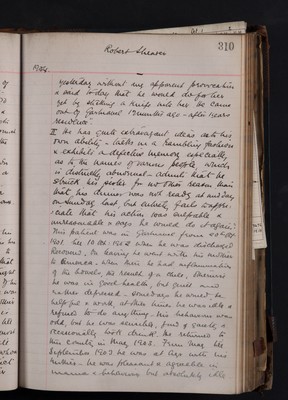 310
Robert Shearer
1904.
yesterday without any apparent provocation
& said today that he would do for her
yet by sticking a knife into her. He came
out of Gartnavel 12 months ago - after 1 years
residence".
II He has quite extravagant ideas as to his
own ability - talks in a rambling fashion
& exhibits a defective memory especially
as to the names of various people which
is distinctly abnormal - admits that he
struck his sister for no other reason than
that his dinner was not ready at midday
on Sunday last, but entirely fails to appre-
ciate that his action was culpable &
unreasonable & says he would do it again".
This patient was in Gartnavel from
1901 till 10 1902 when he was discharged
Recovered. On leaving he went with his mother
to While there he had inflammation
of the bowels, the result of a chill, otherwise
he was in good health, but quiet and
rather depressed - some days he would be
helpful & work, at other times he was idle &
refused to do anything. His behaviour was
odd, but he was cheerful,
occasionally took drink. He returned to
this County in May 1903. From May till
September 1903 he was at with his
mother - he was pleasant & agreeable in
manner & behaviour but absolutely idle